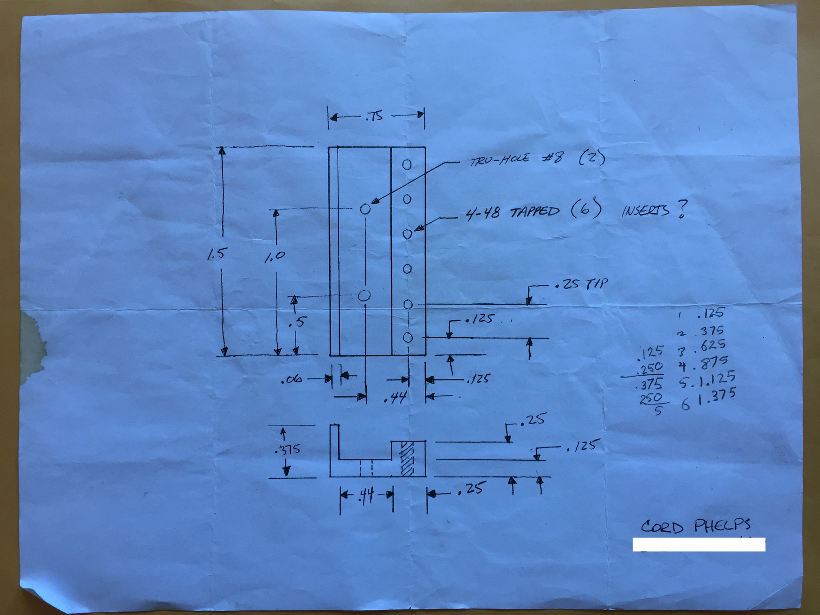 .75
THU-HOLE #8 (2)
4-48 TAPPED (6) INSERTS ?
1.5
1.0
.25 TYP
.5
.125
.06
.44
.125
1 .125
2 .375
3 .625
4 .875
5. 1.125
6 1.375
.125
.250
.375
250
5
.375
.25
.125
.44
.25
CORD PHELPS